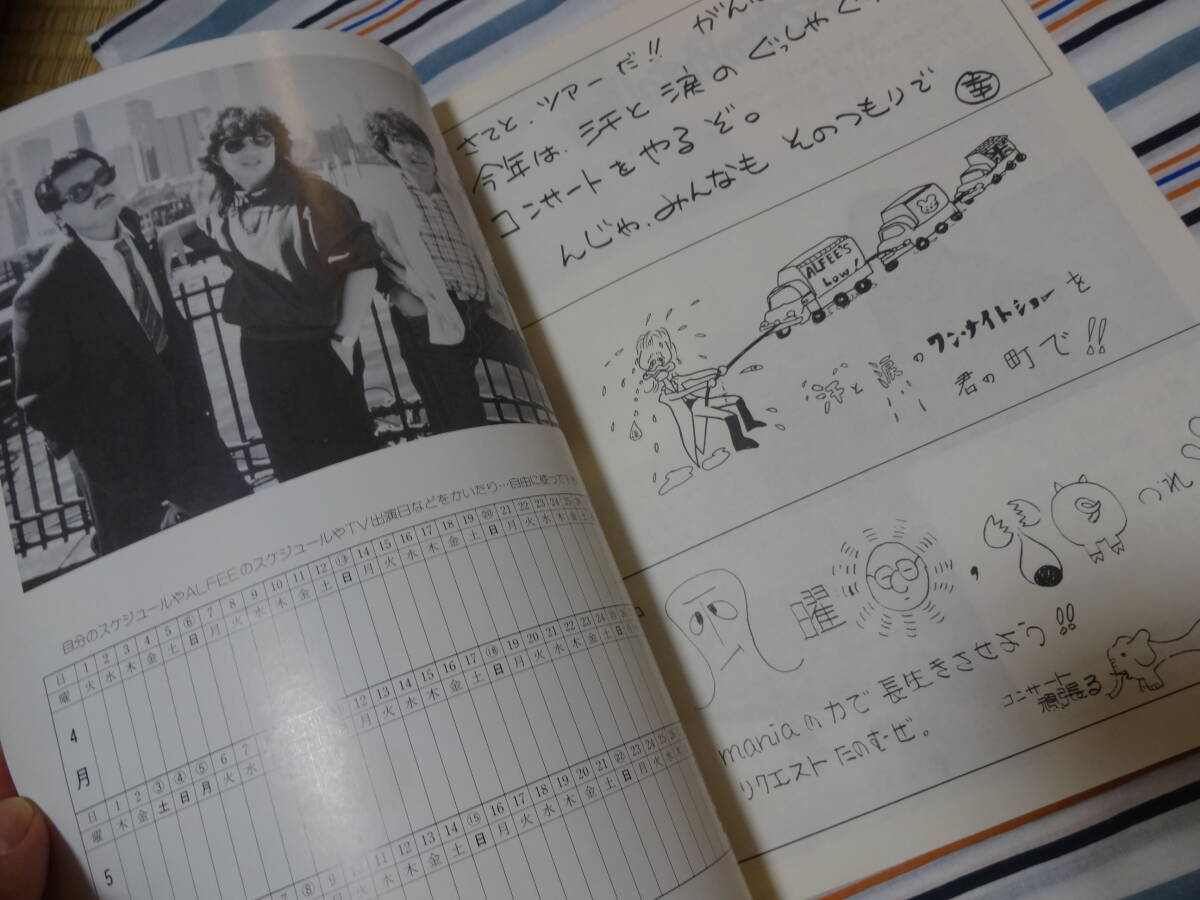 自分のスケジュールやALFEEのスケジュールやTV出演日などをかいたり…自由に使って下さい
日 1 2 3 4 5 ⑥ 7 8 9 10 11 12 ⑬ 14 15 16 17 18 19 ⑳ 21 22 23 24 25
曜 火 水 木 金 土 日 月 火 水 木 金 土 日 月 火 水 木 金 土 日 月 火 水 木 金
4月
日 1 2 ③ ④ ⑤ 6 7 12 13 14 15 16 17 ⑱ 19 20 21 22 23 24
曜 木 金 土 日 月 火 水 月 火 水 木 金 土 日 月 火 水 木 金 土
5
7 ⑧ 9 10 11 12 13 14 ⑮ 16 17 18 19 20 21 ㉒ 23 24 25
金 土 日 月 火 水 木 金 土 日 月 火 水
さてと、ツアーだ!!
今年は、汗と涙のぐっしゃぐ
コンサートをやるぞ。
んじゃ、みんなも そのつもりで
幸
ALFEE'S
Low!
汗と涙のワン・ナイトショーを
君の町で!!
曜
,
づれ
maniaの力で長生きさせよう!!
リクエストたのむぜ。
コンサート
頑張る